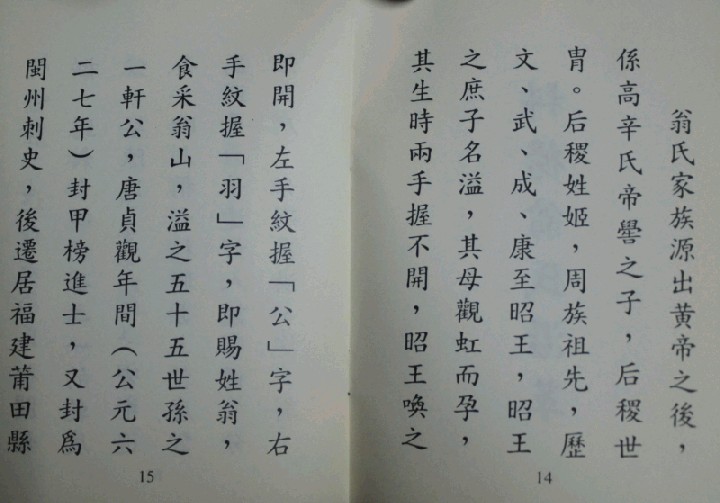 翁氏家族源出黄帝之後，
係高辛氏帝嚳之子，后稷世
冑。后稷姓姬，周族祖先，歷
文、武、成、康至昭王，昭王
之庶子名溢，其母觀虹而孕，
其生時兩手握不開，昭王喚之
14
即開，左手紋握「公」字，右
手紋握「羽」字，即賜姓翁，
食采翁山，溢之五十五世孫之
一軒公，唐貞觀年間（公元六
二七年）封甲榜進士，又封爲
閩州刺史，後遷居福建莆田縣
15